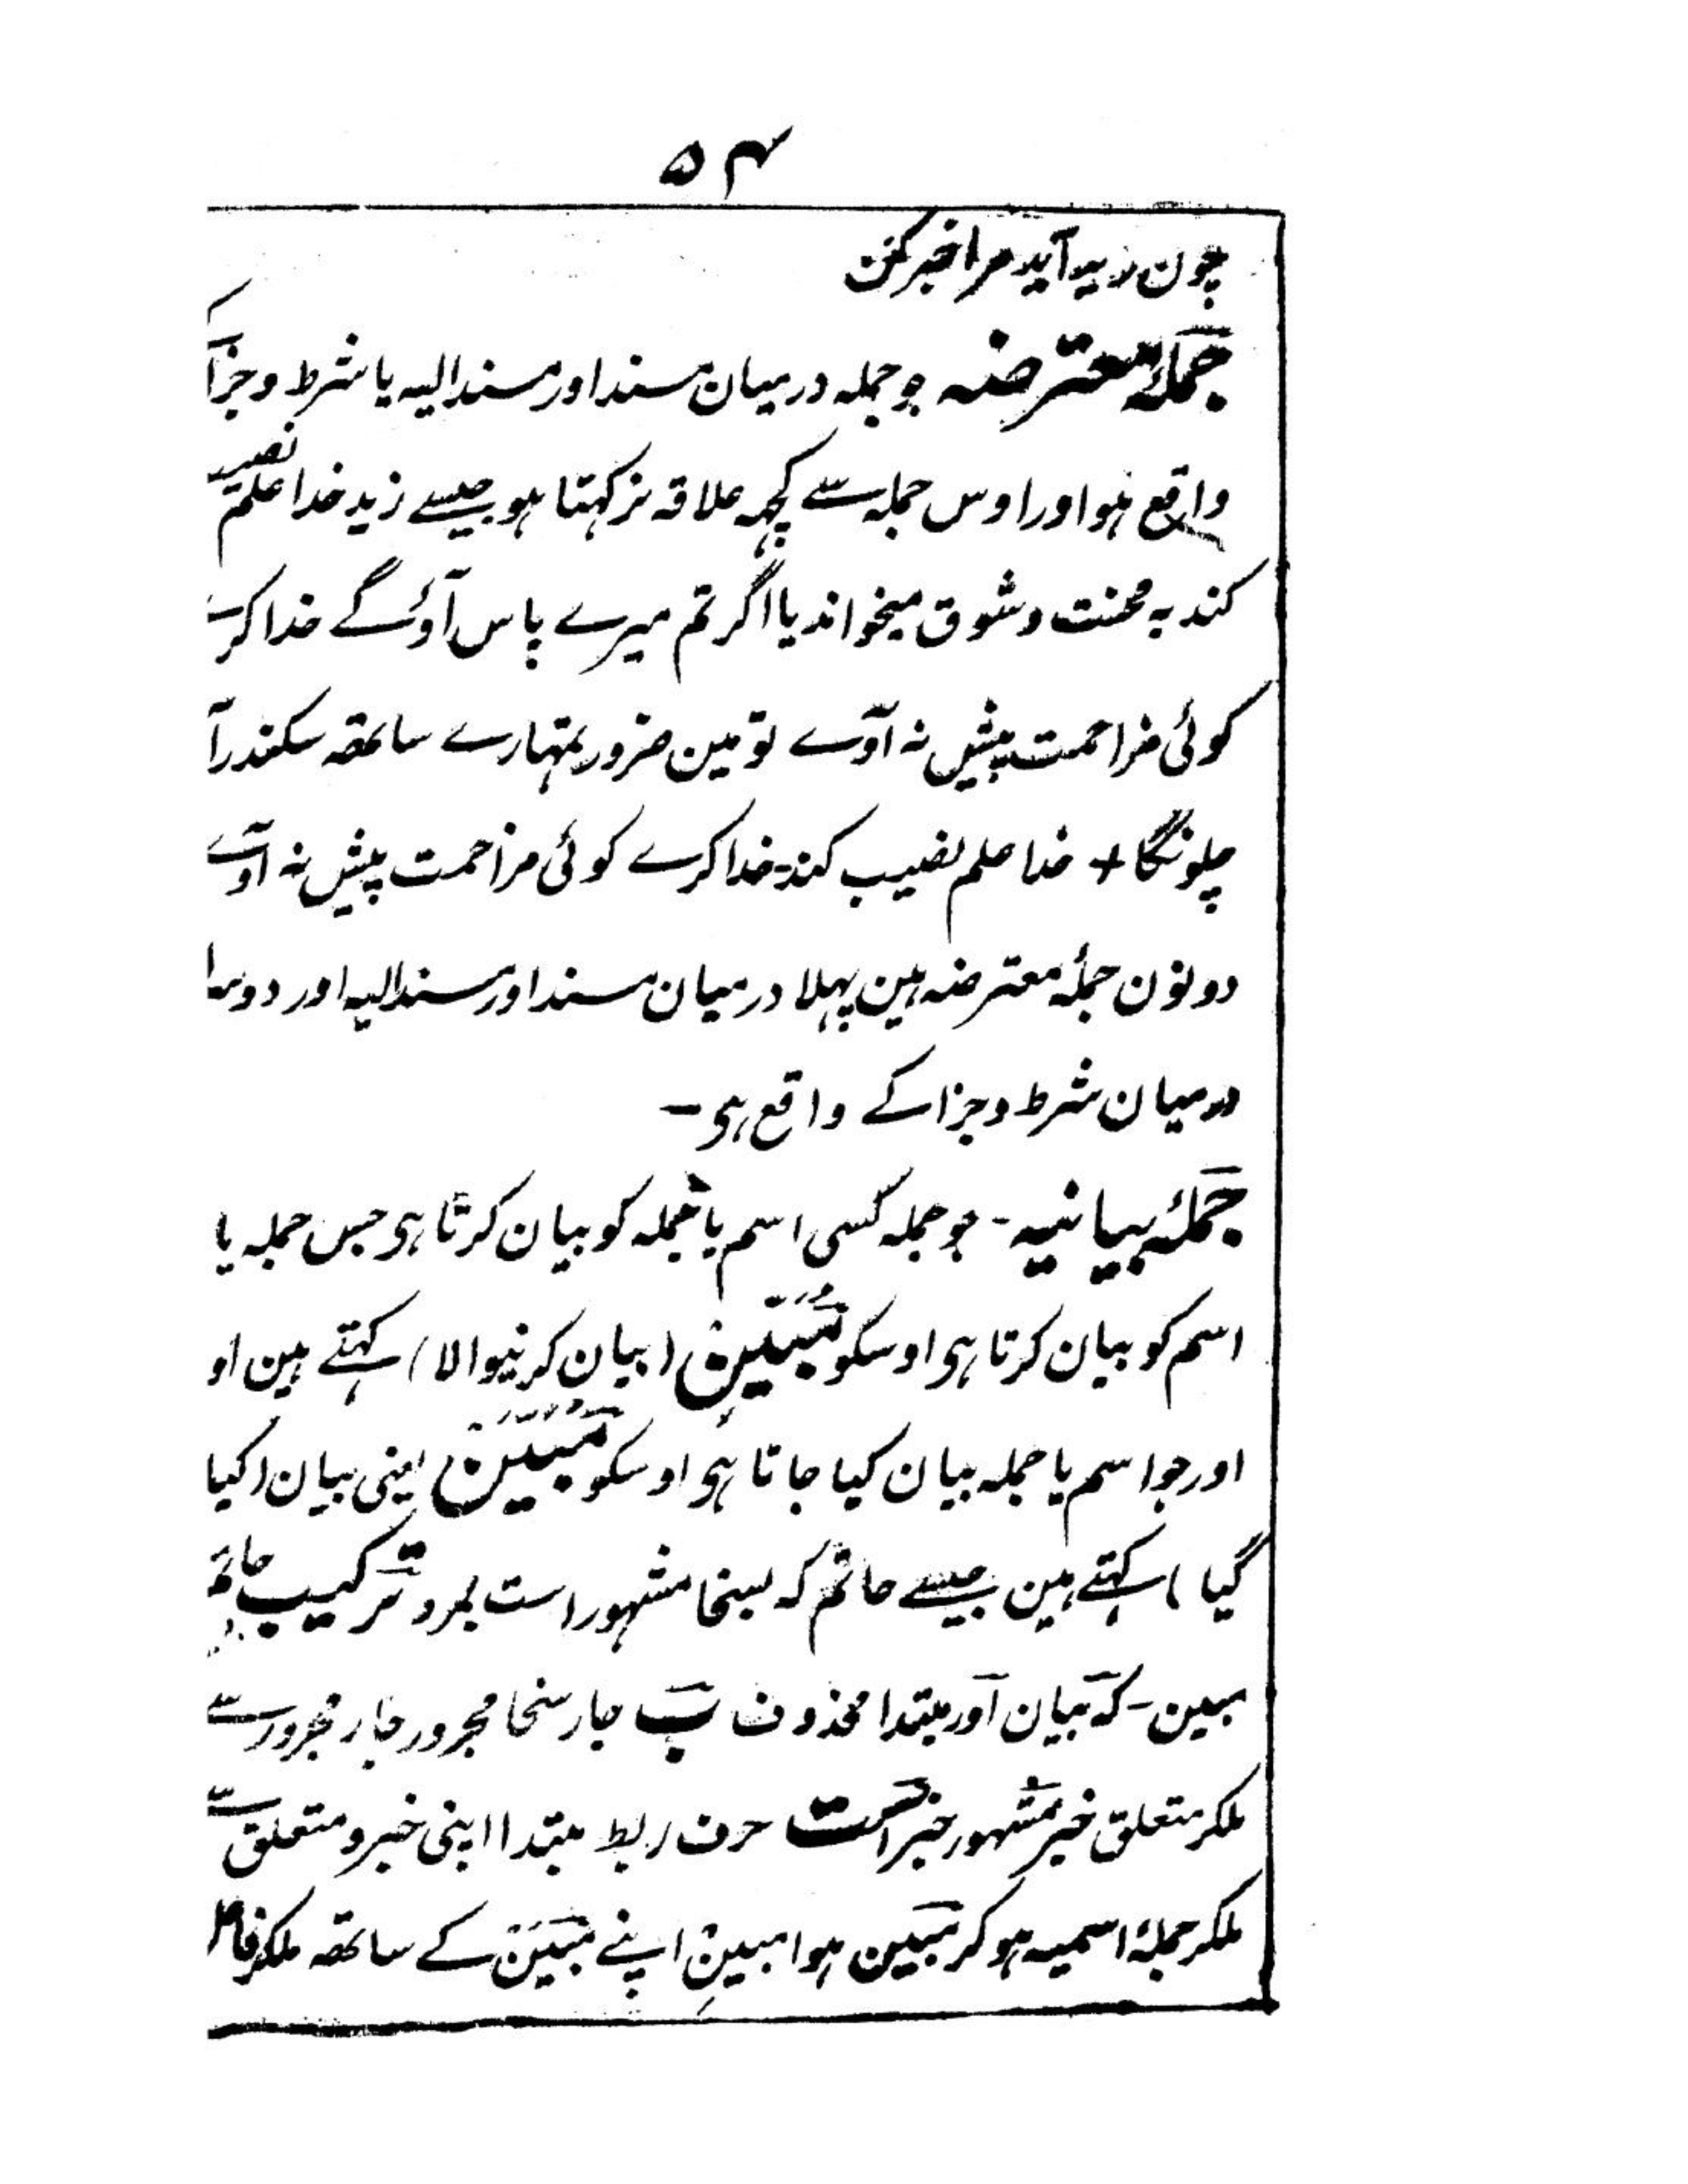 ۵۴
چون زید آید مرا خبر کن
جملۂ معترضہ جو جملہ درمیان مسند اور مسند الیہ یا شرط و جزا کے
واقع ہو اور اوس جملہ سے کچھ علاقہ نرکہتا ہو جیسے زید خدا علم نصیب
کند بہ محنت و شوق میخواند یا اگر تم میرے پاس آؤگے خدا کرے
کوئی مزاحمت پیش نہ آوے تو مین ضرور تمہارے ساتھ سکندرآ
چلونگا + خدا علم نصیب کند۔ خدا کرے کوئی مزاحمت پیش نہ آوے
دونون جملۂ معترضہ ہین پہلا درمیان مسند اور مسند الیہ اور دوسرا
درمیان شرط و جزا کے واقع ہی ۔
جملۂ بیانیہ ۔ جو جملہ کسی اسم یا جملہ کو بیان کرتا ہی جس جملہ یا
اسم کو بیان کرتا ہی اوسکو مُبَیِّنْ (بیان کرنیوالا) کہتے ہین او
اور جو اسم یا جملہ بیان کیا جاتا ہی اوسکو مُبَیَّنْ یعنی بیان (کیا
گیا) کہتے ہین جیسے حاتم کہ بسخا مشہور است بمرد ترکیب حاتم
مبین ۔ کہ بیان اور مبتدا محذوف ب جار سخا مجرور جار مجرور سے
ملکر متعلق خبر مشہور خبر است حرف ربط مبتدا اپنی خبر و متعلق سے
ملکر جملۂ اسمیہ ہو کر مبین ہوا مبینِ اپنے مبیَّن کے ساتھ ملکر فاعل